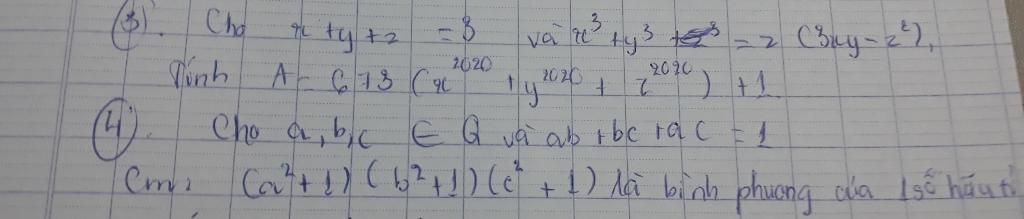 (3). Cho x + y + z = 3 và x³ + y³ = z (3xy - z²),
Tính A = 673 (x²⁰²⁰ + y²⁰²⁰ + z²⁰²⁰) + 1
(4). Cho a, b, c ∈ Q và ab + bc + ac = 1
Cm: (a² + 1) (b² + 1) (c² + 1) là bình phương của 1 số hữu tỉ